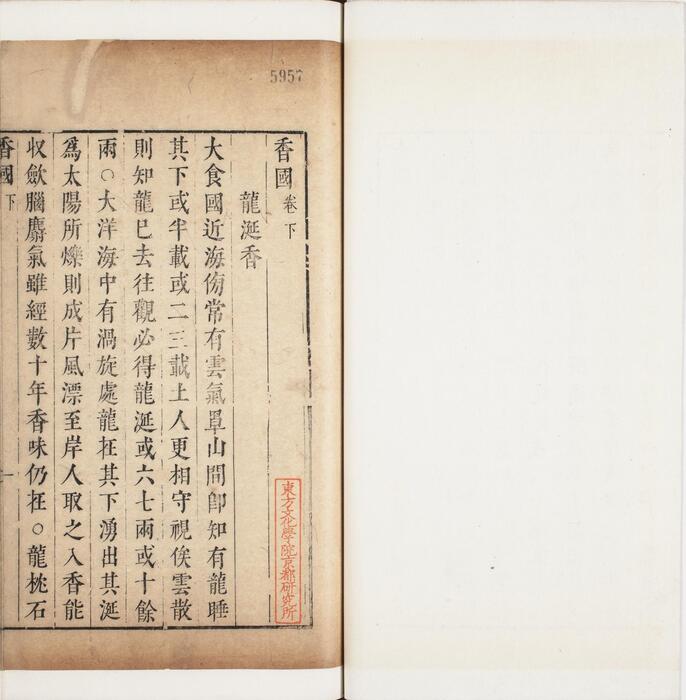 5957
香國卷下
龍涎香
大食國近海傍常有雲氣罩山間卽知有龍睡
其下或半載或二三載土人更相守視俟雲散
則知龍已去往觀必得龍涎或六七兩或十餘
兩○大洋海中有渦旋處龍在其下湧出其涎
爲太陽所爍則成片風漂至岸人取之入香能
收斂腦麝氣雖經數十年香味仍在○龍枕石
香國 下 一
東方文化學院京都研究所